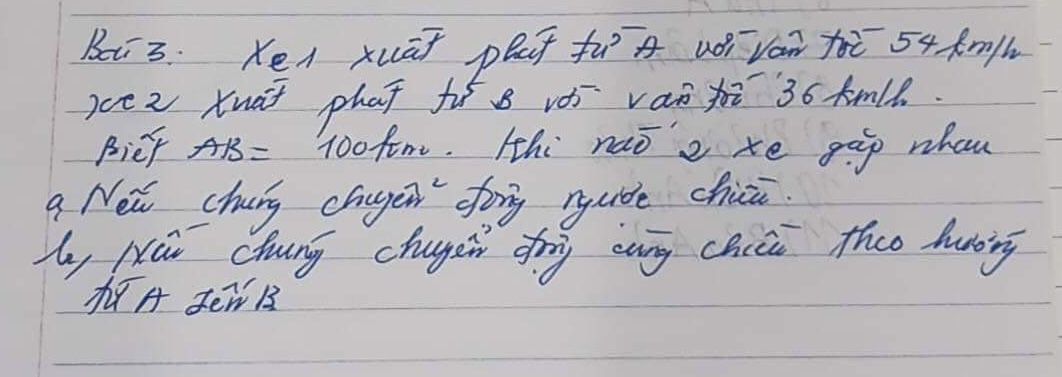 Bài 3: Xe 1 xuất phát từ A với vận tốc 54 km/h
xe 2 xuất phát từ B với vận tốc 36 km/h.
Biết AB = 100 km. Khi nào 2 xe gặp nhau
a, Nếu chúng chuyển động ngược chiều.
b, Nếu chúng chuyển động cùng chiều theo hướng
từ A đến B